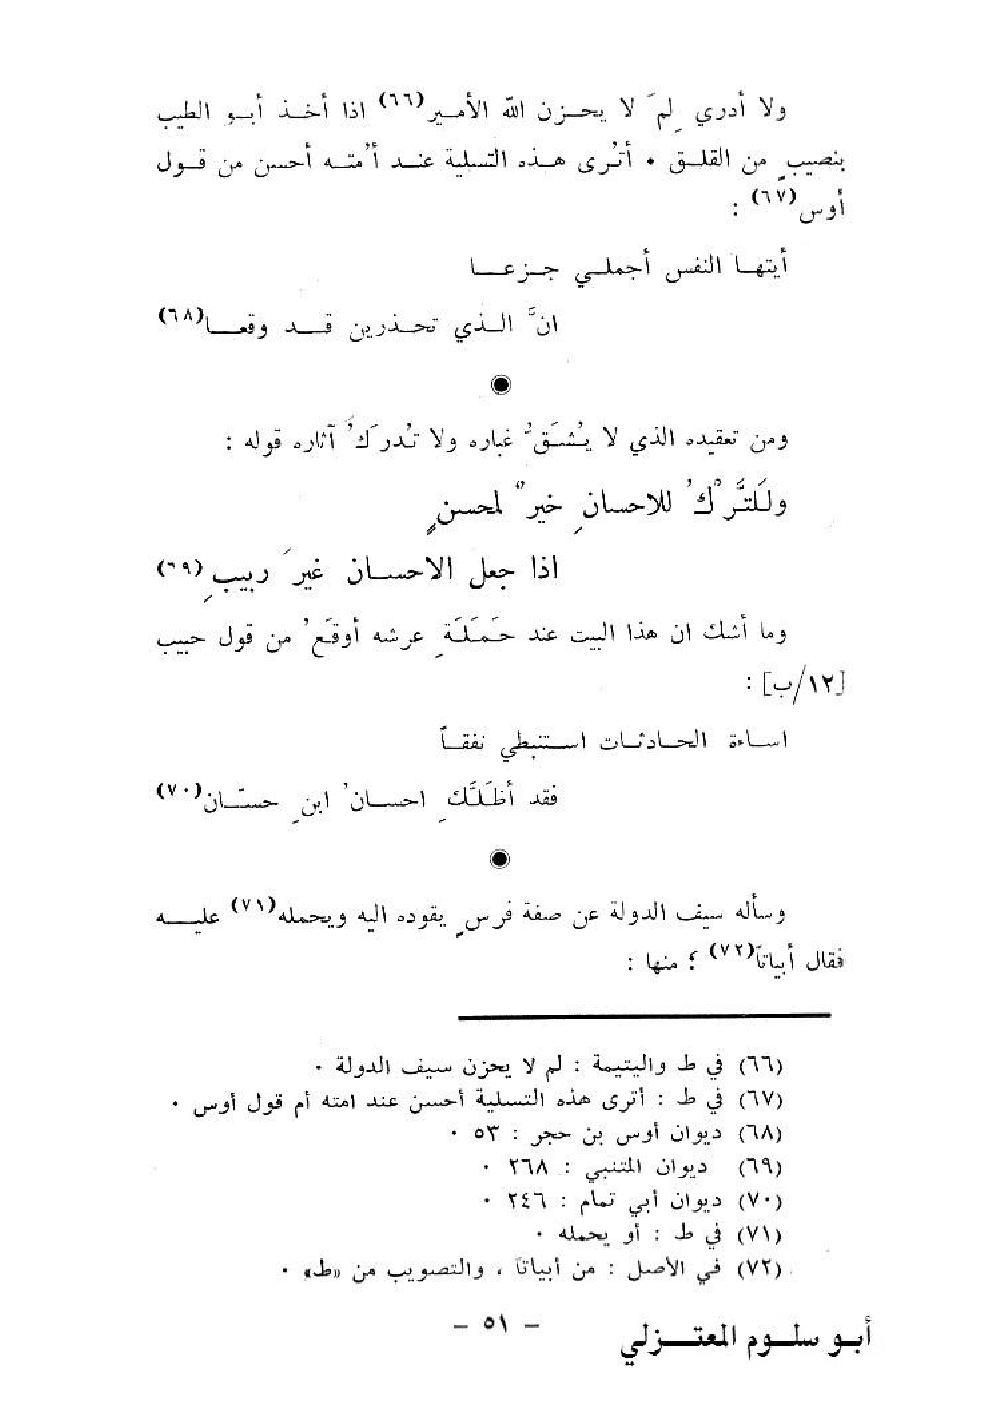 ولا أدري لِمَ لا يحزن الله الأمير(٦٦) اذا أخذ أبو الطيب
بنصيبٍ من القلق ٠ أتُرى هذه التسلية عند أُمته أحسن من قول
أوس(٦٧) :
أيتها النفس أجملي جزعا
انَّ الذي تحذرين قد وقعا(٦٨)
ومن تعقيده الذي لا يُشَقُّ غباره ولا تُدرَكُ آثاره قوله :
ولَلتَّرْكُ للاحسانِ خيرٌ لمحسنٍ
اذا جعل الاحسان غيرَ ربيبِ(٦٩)
وما أشك ان هذا البيت عند حَمَلَةِ عرشه أوقَعُ من قول حبيب
[١٢/ب] :
اساءة الحادثات استنبطي نفقاً
فقد أظَلَّكِ احسانُ ابنِ حسّان(٧٠)
وسأله سيف الدولة عن صفة فرسٍ يقوده اليه ويحمله(٧١) عليه
فقال أبياتاً(٧٢) ؛ منها :
(٦٦) في ط واليتيمة : لم لا يحزن سيف الدولة ٠
(٦٧) في ط : أترى هذه التسلية أحسن عند امته أم قول أوس ٠
(٦٨) ديوان أوس بن حجر : ٥٣ ٠
(٦٩) ديوان المتنبي : ٢٦٨ ٠
(٧٠) ديوان أبي تمام : ٢٤٦ ٠
(٧١) في ط : أو يحمله ٠
(٧٢) في الأصل : من أبياتاً ، والتصويب من «ط» ٠
– ٥١ –
أبو سلوم المعتزلي